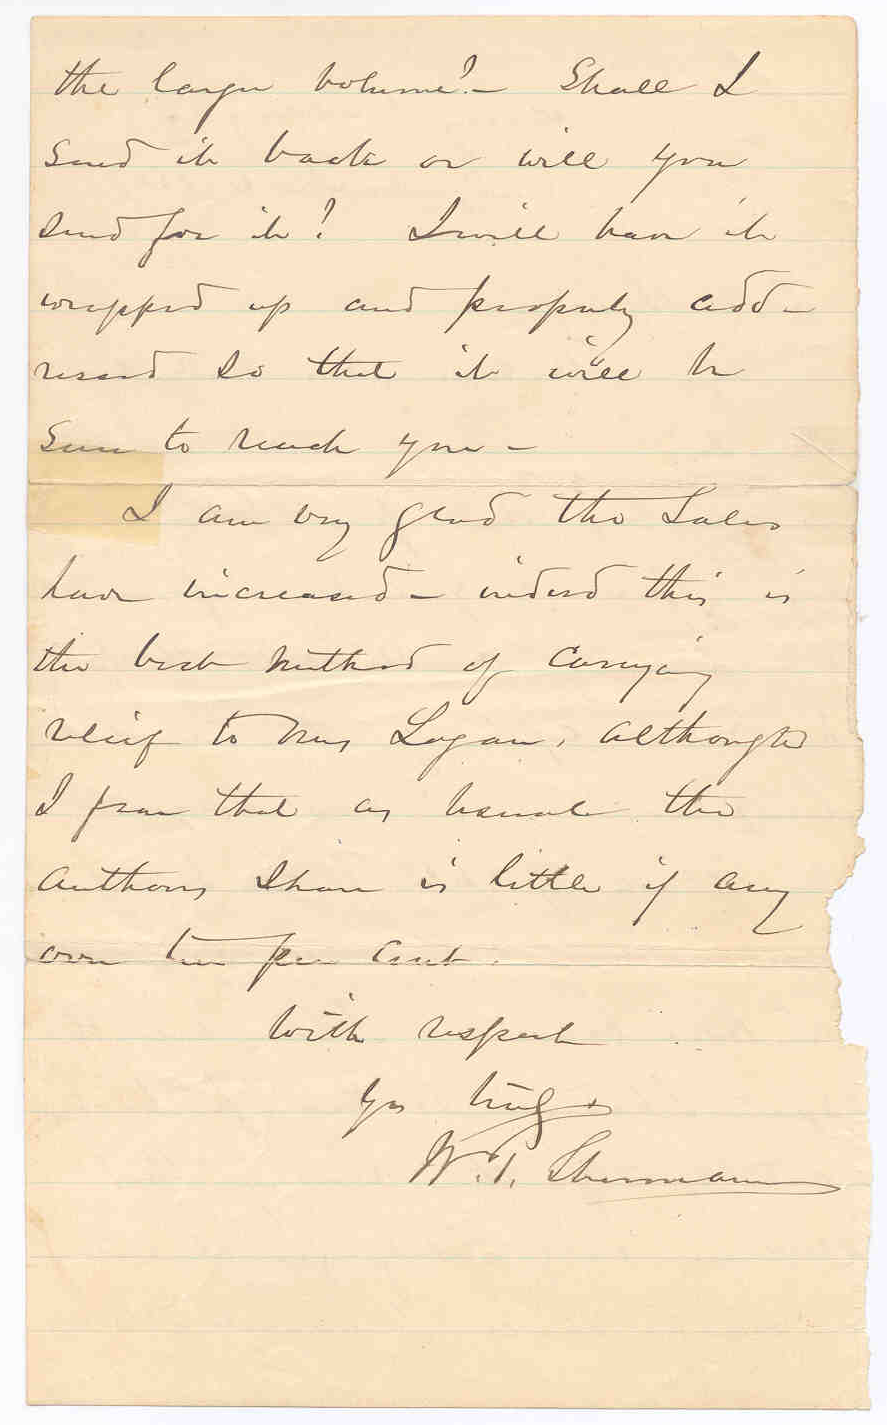 the larger volume?—  Shall I
send it back or will you
send for it?  I will have it
wrapped up and properly add-
ressed so that it will be
sure to reach you—
I am very glad the Sales
have increased— indeed this is
the best method of carrying
relief to Mrs Logan, although
I fear that as usual the
Authors Share is little if any
over ten per cent.
With respect
Yrs truly
W. T. Sherman